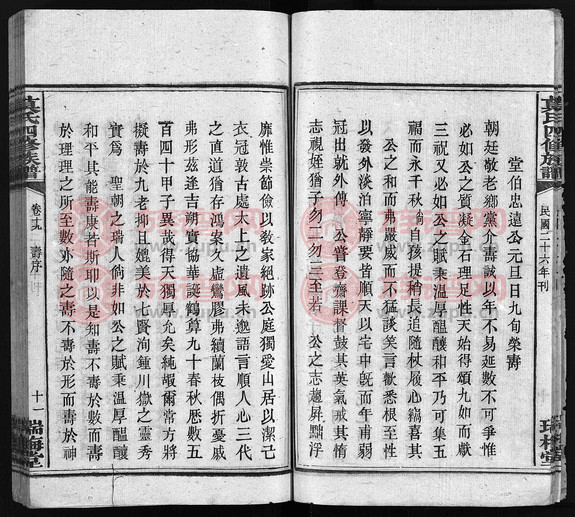 莫氏四修族譜
民國三十六年刊
堂伯忠遠公元旦日九旬榮壽
朝廷敬老鄉黨介壽誠以年不易延數不可爭惟
必如公之質凝金石理足性天始得頌九如而獻
三祝又必如公之賦稟溫厚醞釀和平乃可集五
福而永千秋自孩提稍長追隨杖履心竊喜其
公之和而弗嚴威而不猛談笑言歡悉根至性
以發外淡泊寧靜要皆順天以宅中旣而年甫弱
冠出就外傳公嘗登齋課督鼓其英氣戒其惰
志視姪猶子勿二勿三至若公之志趣屏黜浮
靡惟崇節儉以敎家絕跡公庭獨愛山居以潔己
衣冠敦古處太上之遺風未邈語言順人心三代
之直道猶存況鴻案久虛鸞膠弗續蘭枝偶折憂戚
弗形茲逢吉朔賓協華誕鶴算九十春秋厯數五
百四十甲子異哉得天獨厚允矣純嘏爾常方將
擬壽於九老抑且媲美於七賢洵鍾川嶽之靈秀
實爲聖朝之瑞人倘非如公之賦稟溫厚醞釀
和平其能壽康若斯耶以是知壽不壽於數而壽
於理理之所至數亦隨之壽不壽於形而壽於神
莫氏四修族譜
壽序
十一